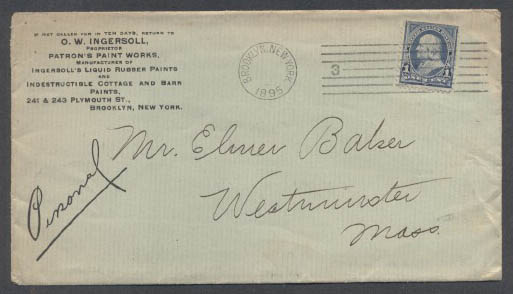 IF NOT CALLED FOR IN TEN DAYS, RETURN TO
O. W. INGERSOLL,
PROPRIETOR
PATRON'S PAINT WORKS,
MANUFACTURER OF
INGERSOLL'S LIQUID RUBBER PAINTS
AND
INDESTRUCTIBLE COTTAGE AND BARN
PAINTS,
241 & 243 PLYMOUTH ST.,
BROOKLYN, NEW YORK.
BROOKLYN, NEW YORK
1895
3
1
ONE CENT
1
Personal
Mr. Elmer Balser
Westminster
Mass.